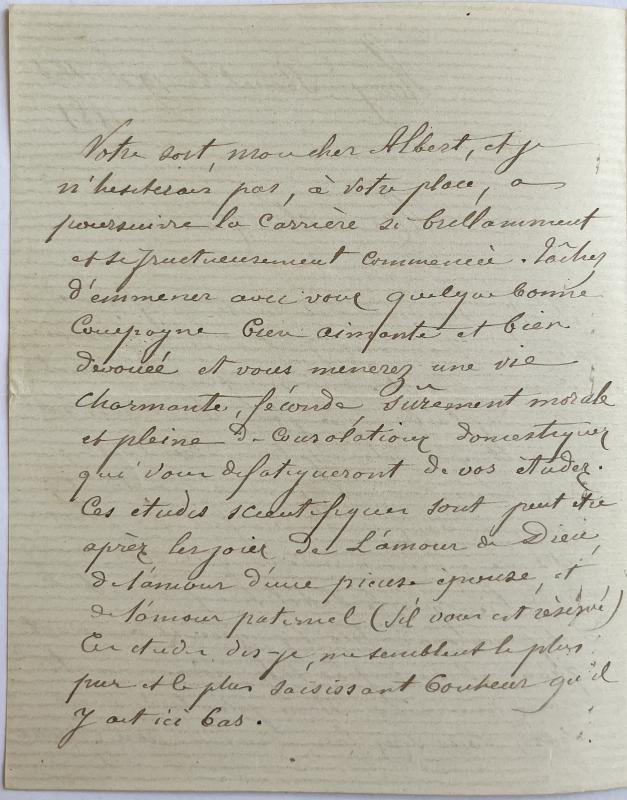 Votre sort, mon cher Albert, et je
n'hesiterais pas, à votre place, a
poursuivre la Carrière si brillamment
et si fructueusement commencée. Tâchez
d'emmener avec vous quelque bonne
Compagne bien aimante et bien
dévouée et vous menerez une vie
charmante, féconde sûrement morale
et pleine de Consolations domestiques
qui vous defatigueront de vos études.
Ces études scientifiques sont peut être
après les joies de L'amour de Dieu,
de l'amour d'une pieuse épouse, et
de l'amour paternel (s'il vous est réservé)
Ces etudes dis-je, me semblent le plus
pur et le plus saisissant bonheur qu'il
y ait ici bas.